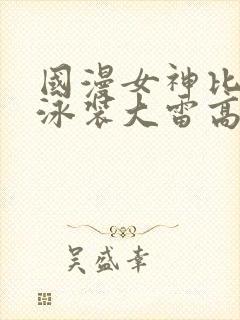 國漫女神比
泳裝大雷高
吴盛幸